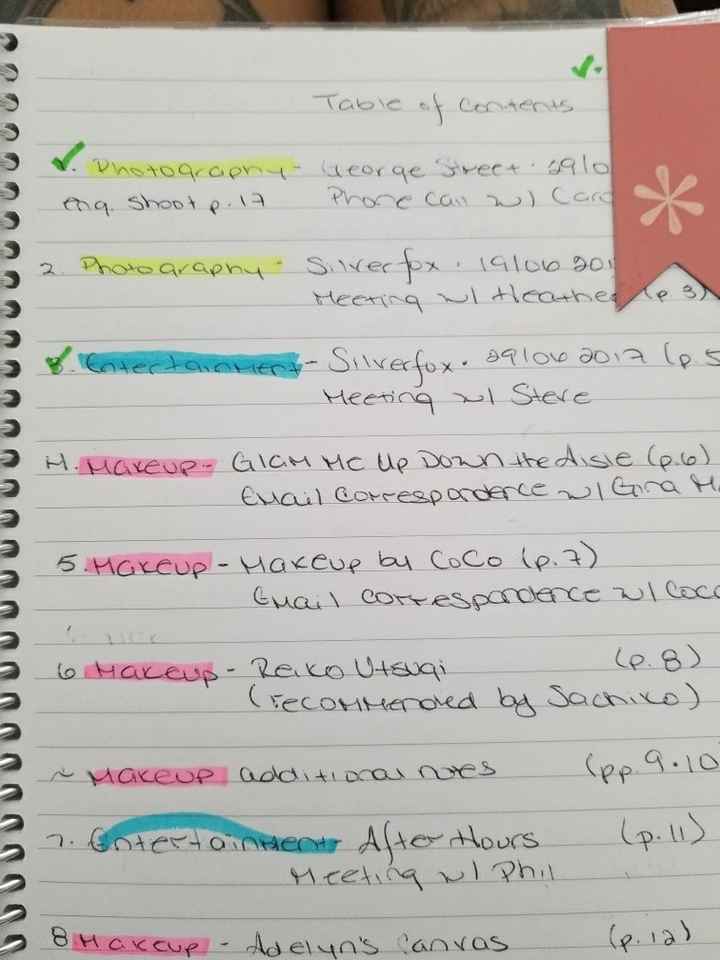 Table of Contents
1. Photography - George Street. 2910
eng. shoot p.17 Phone call w/
2. Photography - Silverfox. 19/06 201
Meeting w/ Heather (p. 3)
3. Entertainment - Silverfox. 29/06 2017 (p. 5
Meeting w/ Steve
4. Makeup - Glam Me Up Down the Aisle (p.6)
Email Correspondence w/ Gina
5. Makeup - Makeup by CoCo (p.7)
Email correspondence w/ Coco
6 Makeup - Reiko Utsugi (p. 8)
(recommended by Sachiko)
~ Makeup additional notes (pp. 9-10
7. Entertainment - After Hours (p.11)
Meeting w/ Phil
8 Makeup - Adelyn's Canvas (p.12)